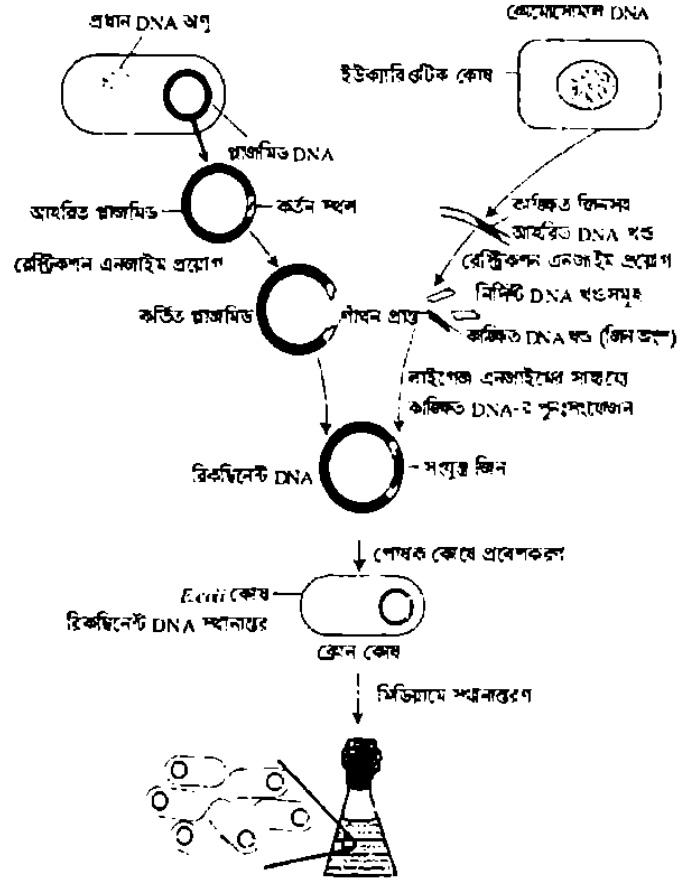 প্রধান DNA অণু
ক্রোমোসোমাল DNA
ইউক্যারিওটিক কোষ
প্লাজমিড DNA
আহরিত প্লাজমিড
কর্তন স্থল
কাঙ্ক্ষিত জিনসহ
আহরিত DNA খণ্ড
রেস্ট্রিকশন এনজাইম প্রয়োগ
রেস্ট্রিকশন এনজাইম প্রয়োগ
নির্দিষ্ট DNA খণ্ডসমূহ
কর্তিত প্লাজমিড
প্রান্ত
কাঙ্ক্ষিত DNA খণ্ড (জিন অংশ)
লাইগেজ এনজাইমের সাহায্যে
কাঙ্ক্ষিত DNA-র পুনঃসংযোজন
রিকম্বিনেন্ট DNA
সংযুক্ত জিন
পোষক কোষে প্রবেশকরণ
E.coli কোষ
রিকম্বিনেন্ট DNA স্থানান্তর
ক্লোন কোষ
মিডিয়ামে স্থানান্তরণ